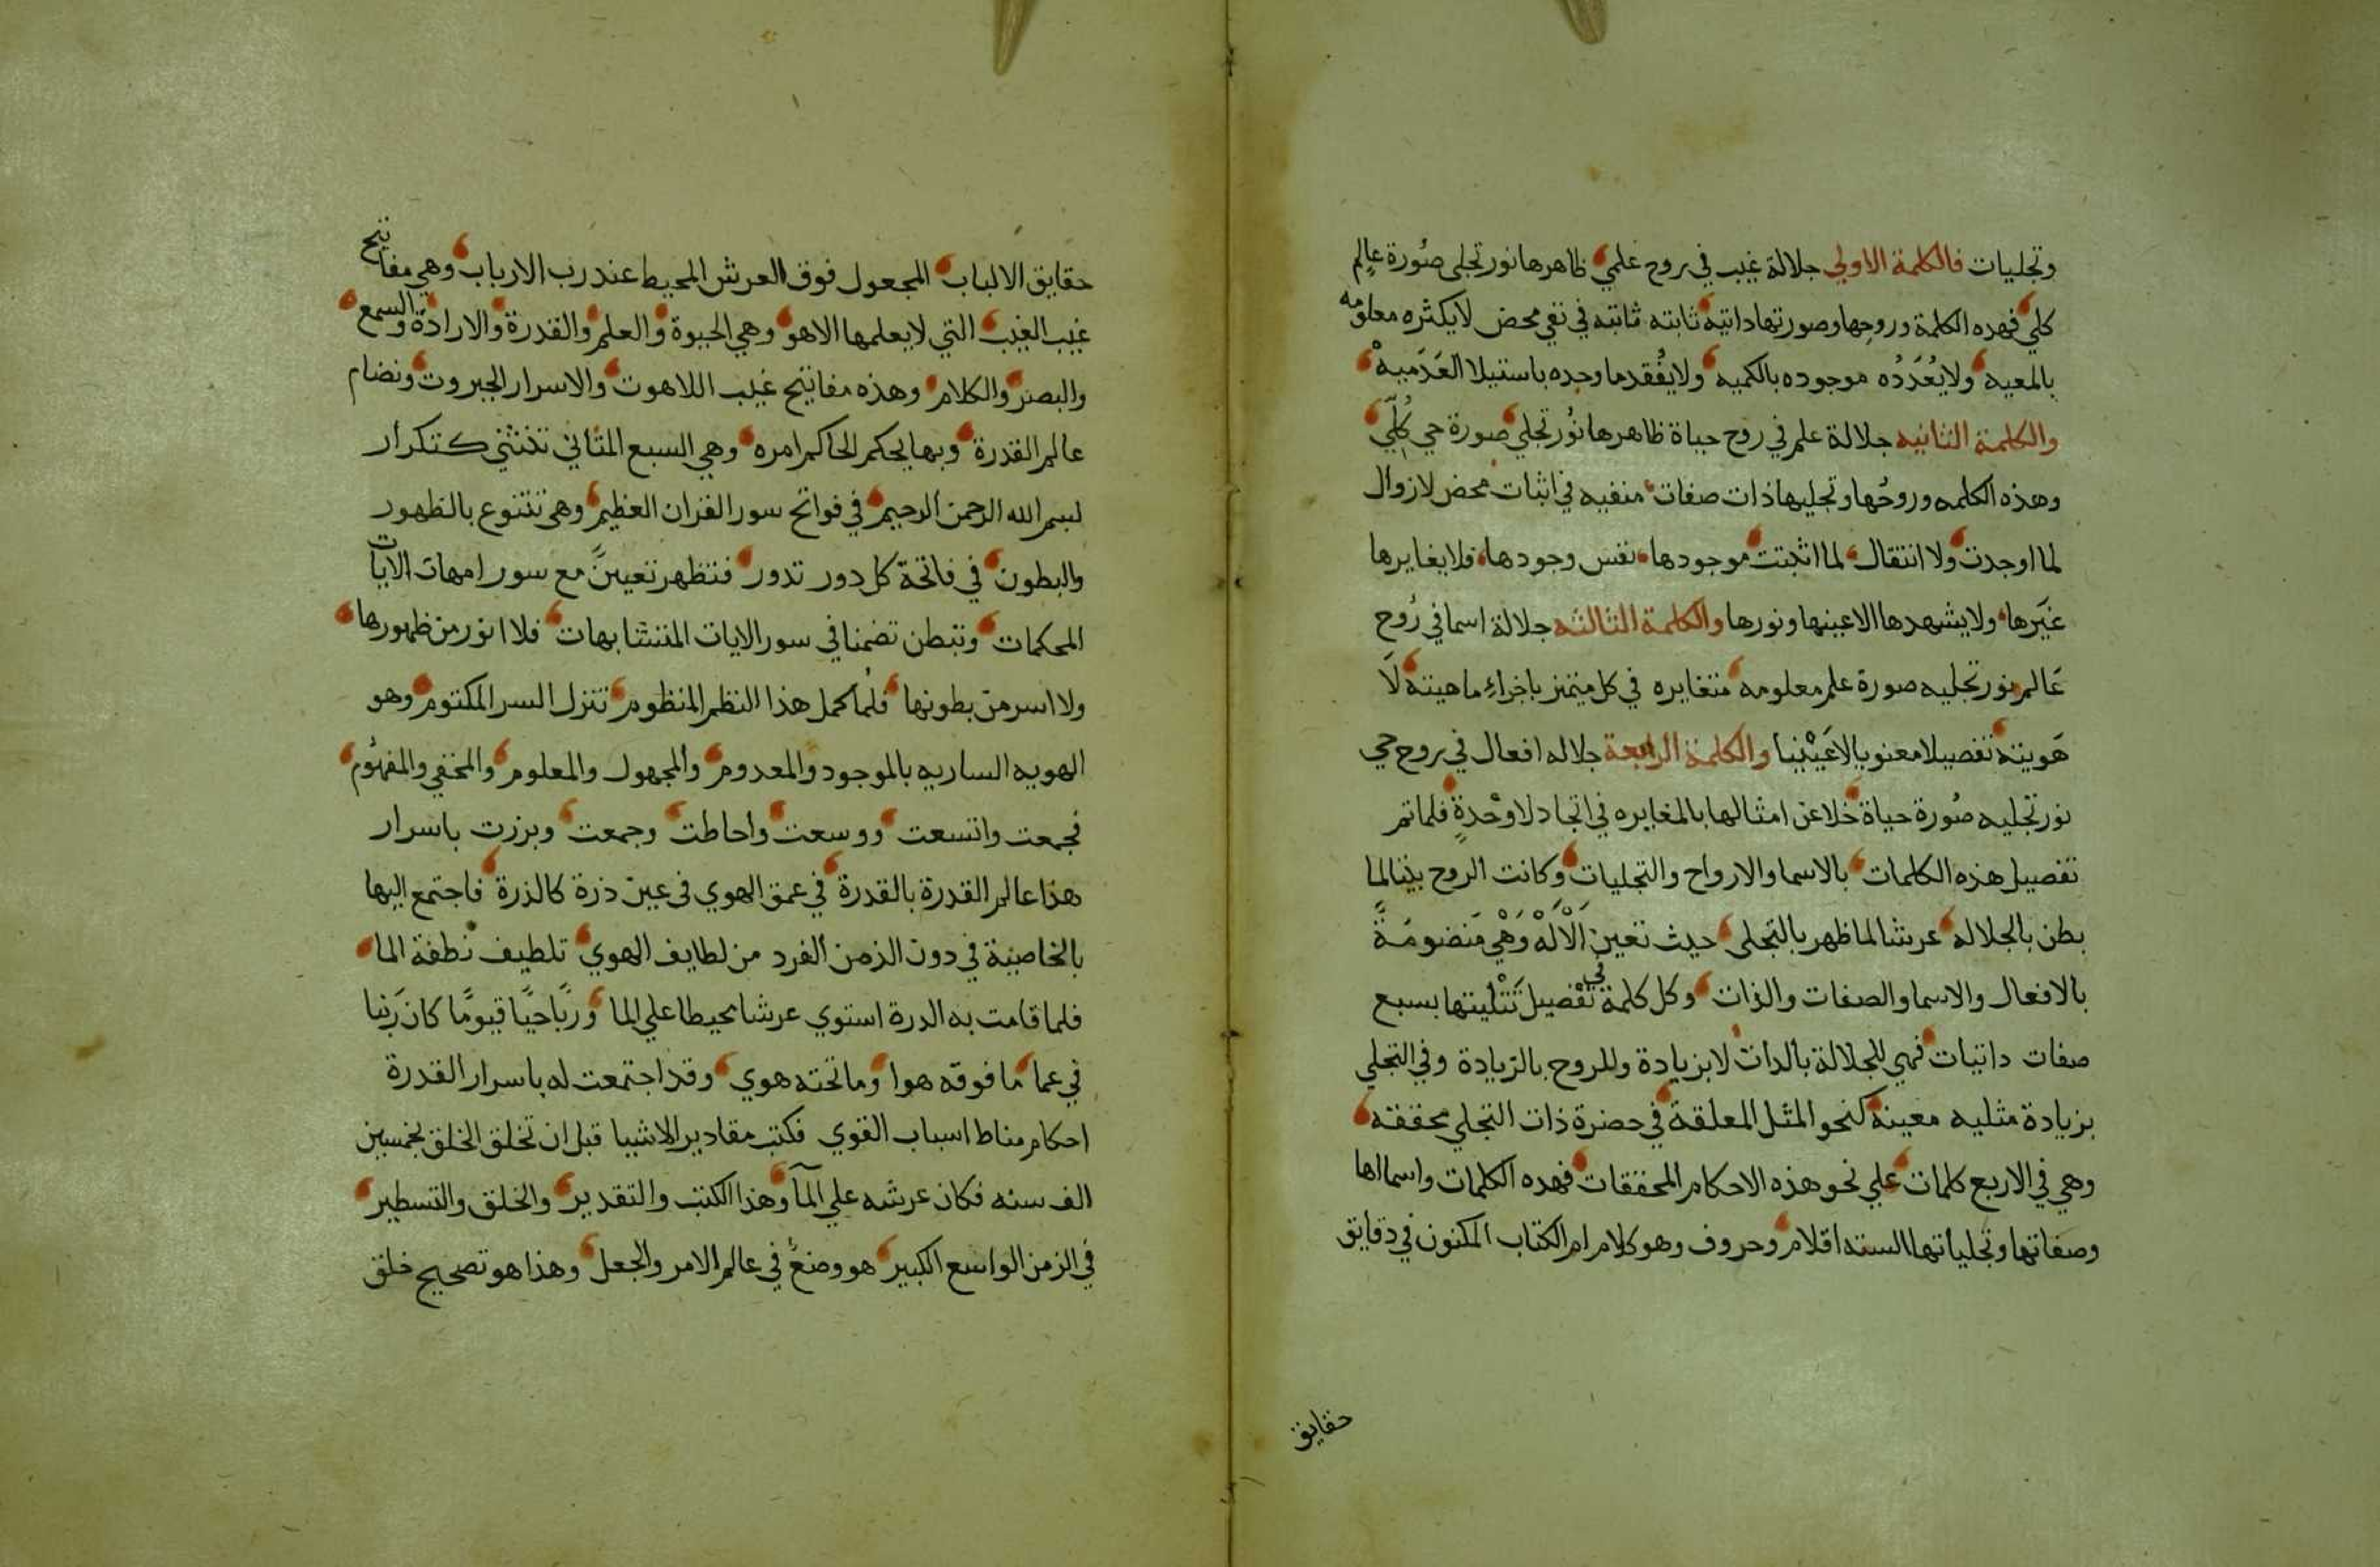 وتجليات فالكلمة الاولي جلالة غيب في روح علمي ظاهرها نور تجلي صورة عالم
كلي فهذه الكلمة وروحها وصورتها داتيه ثابته ثابته في نفي محض لا يكثره معلومه
بالمعيه ولا يعدده موجوده بالكميه ولا يفقد ما وجده باستيلا العدميه
والكلمة الثانيه جلالة علم في روح حياة ظاهرها نور تجلي صورة حي كلي
وهذه الكلمه وروحها وتجليها ذات صفات منفيه في اثبات محض لا زوال
لما اوجدت ولا انتقال لما اثبتت موجودها نفس وجودها فلا يغايرها
غيرها ولا يشهدها الا عينها ونورها والكلمة الثالثه جلالة اسما في روح
عالم نور تجليه صورة علم معلومه متغايره في كل متميز باجزاء ماهيته لا
هويته تفصيلا معنويا لا عينيا والكلمة الرابعة جلاله افعال في روح حي
نور تجليه صورة حياة خلا عن امثالها بالمغايره في اتحاد لا وحدة فلما تم
تفصيل هذه الكلمات بالاسما والارواح والتجليات وكانت الروح بيتا لما
بطن بالجلاله عرشا لما ظهر بالتجلي حيث تعين الاله وهي منضومة
بالافعال والاسما والصفات والذات وكل كلمة في تفصيل تثليتها بسبع
صفات داتيات فهي للجلالة بالدات لا بزيادة وللروح بالزيادة وفي التجلي
بزيادة مثليه معينه كنحو المثل المعلقة في حضرة ذات التجلي محققه
وهي في الاربع كلمات علي نحو هذه الاحكام المحققات فهده الكلمات واسمااها
وصفاتها وتجلياتها السته اقلام وحروف وهو كلام ام الكتاب المكنون في دقايق
حقايق
حقايق الالباب المجعول فوق العرش المحيط عند رب الارباب وهي مفاتيح
غيب الغيب التي لا يعلمها الا هو وهي الحيوة والعلم والقدرة والارادة والسمع
والبصر والكلام وهذه مفاتيح غيب اللاهوت والاسرار الجبروت ونضام
عالم القدرة وبها يحكم الحاكم امره وهي السبع المثاني تتثني كتكرار
بسم الله الرحمن الرحيم في فواتح سور القران العظيم وهي تتنوع بالظهور
والبطون في فاتحة كل دور تدور فتظهر تعيينا مع سور امهات الايات
المحكمات وتبطن تضمنا في سور الايات المتشابهات فلا انور من ظهورها
ولا اسر من بطونها فلما كمل هذا النظم المنظوم تنزل السر المكتوم وهو
الهويه الساريه بالموجود والمعدوم والمجهول والمعلوم والمخفي والمفهوم
فجمعت واتسعت ووسعت واحاطت وجمعت وبرزت باسرار
هذا عالم القدرة بالقدرة في عمق الهوي في عين ذرة كالذرة فاجتمع اليها
بالخاصية في دون الزمن الفرد من لطايف الهوي تلطيف نطفة الما
فلما قامت به الدرة استوي عرشا محيطا علي الما وربا حيا قيوما كان ربنا
في عما ما فوقه هوا وما تحته هوي وقد اجتمعت له باسرار القدرة
احكام مناط اسباب القوي فكتب مقادير الاشيا قبل ان تخلق الخلق بخمسين
الف سنه فكان عرشه علي المآ وهذا الكتب والتقدير والخلق والتسطير
في الزمن الواسع الكبير هو وضع في عالم الامر والجعل وهذا هو تصحيح خلق